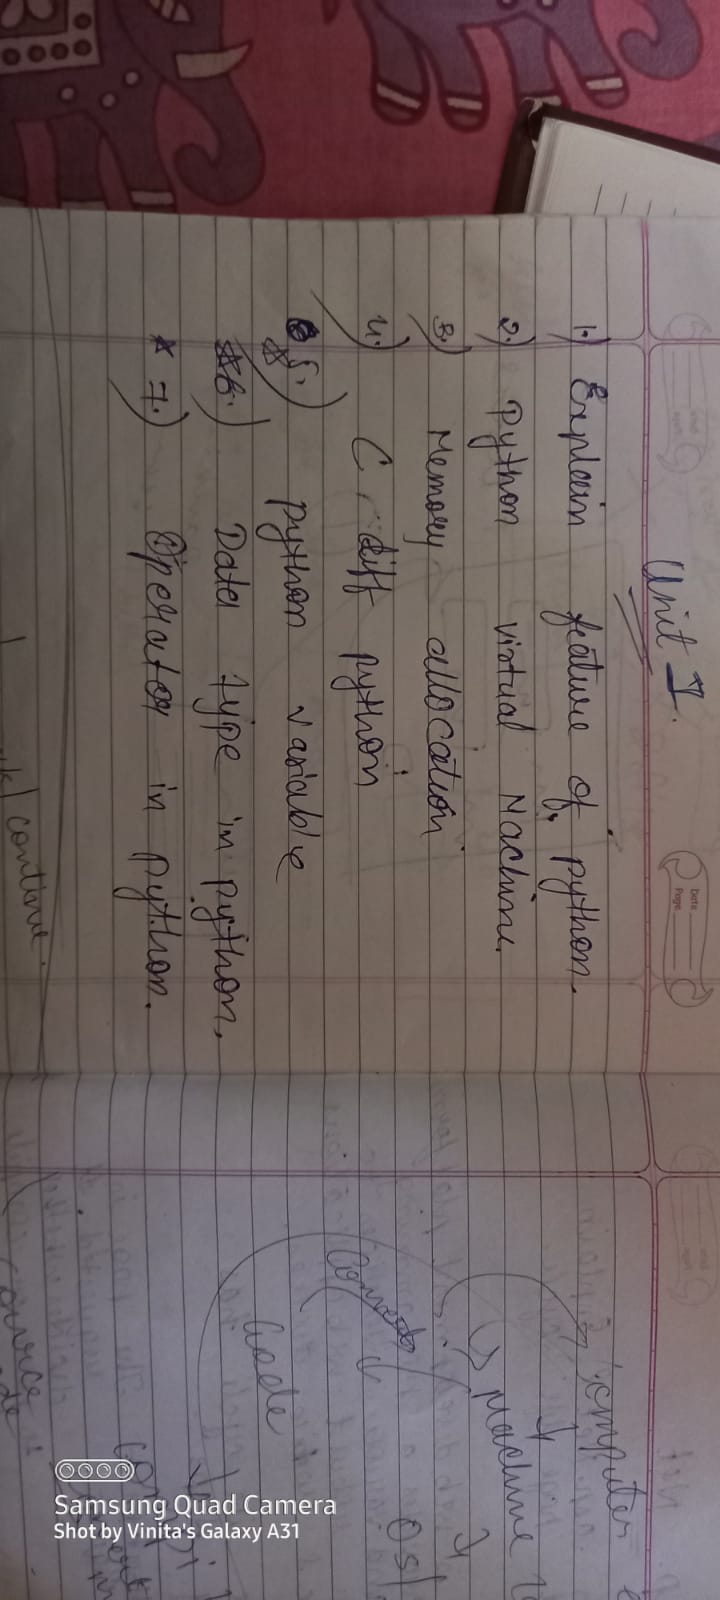 Unit I.
1.) Explain feature of python.
2.) Python virtual Machine.
3.) Memory allocation
4.) C diff python
5.) python variable
6.) Data type in python.
7.) Operator in Python.
continue.
Date
Page
computer
Machine
Os
Code
Source
Samsung Quad Camera
Shot by Vinita's Galaxy A31